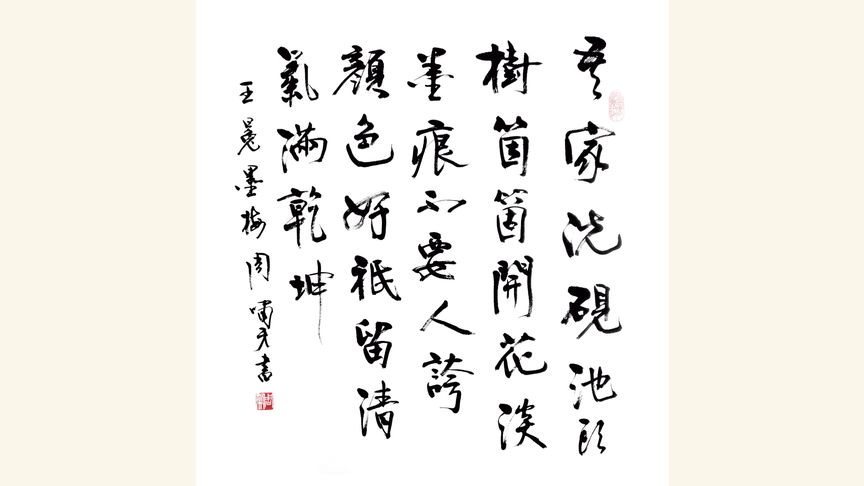 吾家洗硯池頭
樹箇箇開花淡
墨痕不要人誇
顏色好祇留清
氣滿乾坤
王冕墨梅周嘯天書